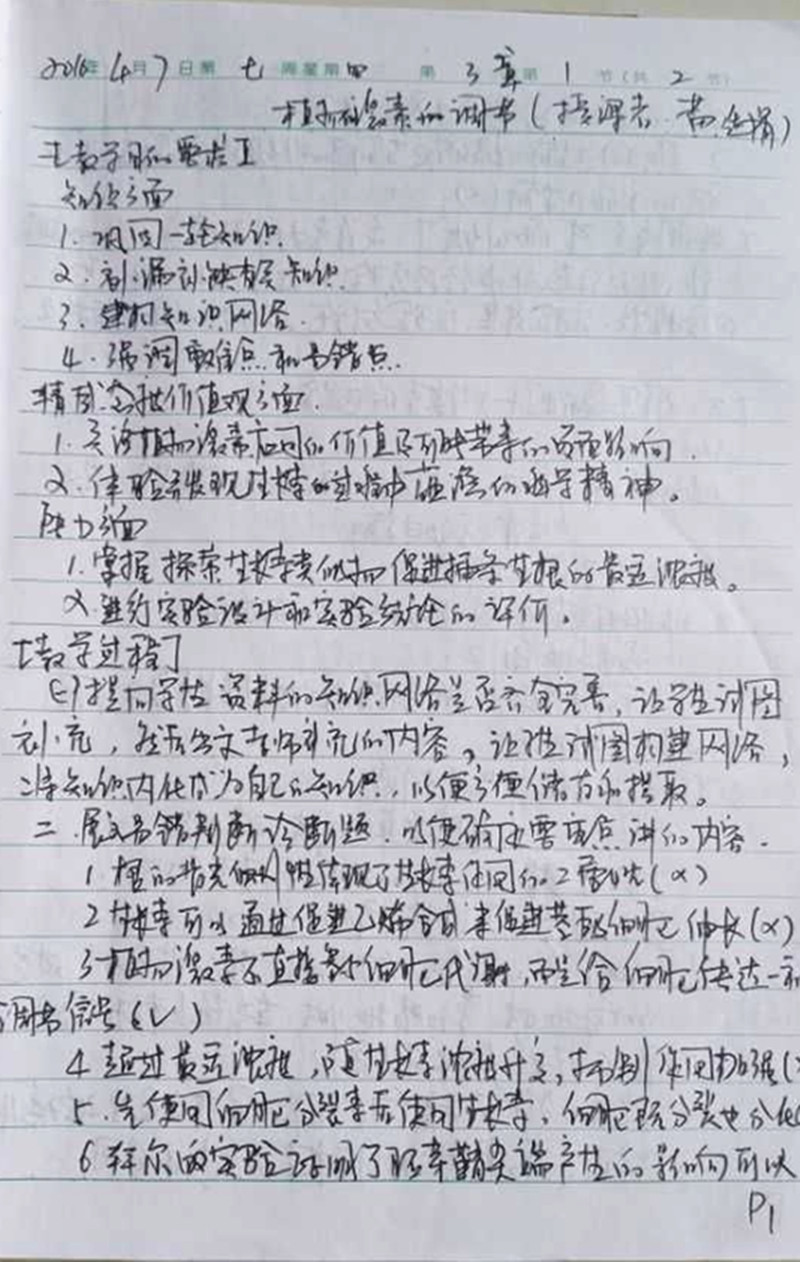 2016年4月7日第七周星期四 第3章第1节(共2节)
植物激素的调节(授课者:黄
[教学目的要求]
知识方面
1.巩固一轮知识.
2.补漏补缺查层知识.
3.建构知识网络.
4.强调重难点和易错点.
情感态度价值观方面.
1.关注植物激素应用的价值及可能带来的负面影响.
2.体验发现生长素的过程中蕴含的科学精神。
能力方面
1.掌握探索生长素类似物促进插条生根的最适浓度。
2.进行实验设计和实验结论的评价。
[教学过程]
(一)提问学生资料的知识网络是否齐全完善,让学生试图
补充,然后公文老师补充的内容。让学生试图构建网络,
将知识内化成为自己的知识,以便方便储存和提取。
二.展示易错判断诊断题.以便确定要重点讲的内容.
1根的背光侧 体现了生长素作用的二重性(×)
2生长素可以通过促进乙烯合成来促进茎段细胞伸长(×)
3植物激素不直接参加细胞代谢,而是给细胞传达一种
调节信号(√)
4超过最适浓度,随生长素浓度升高,抑制作用加强(
5.先使用细胞分裂素后使用生长素,细胞既分裂也分化
6拜尔的实验证明了胚芽鞘尖端产生的影响可以
P1